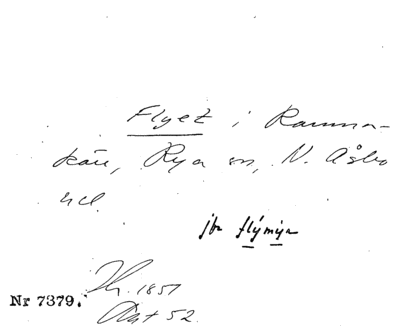 Flyet i Ramna-
kärr, Rya sn, N. Åsbo
hd.
jfr flýmýr
Nr 7379. 1857
52